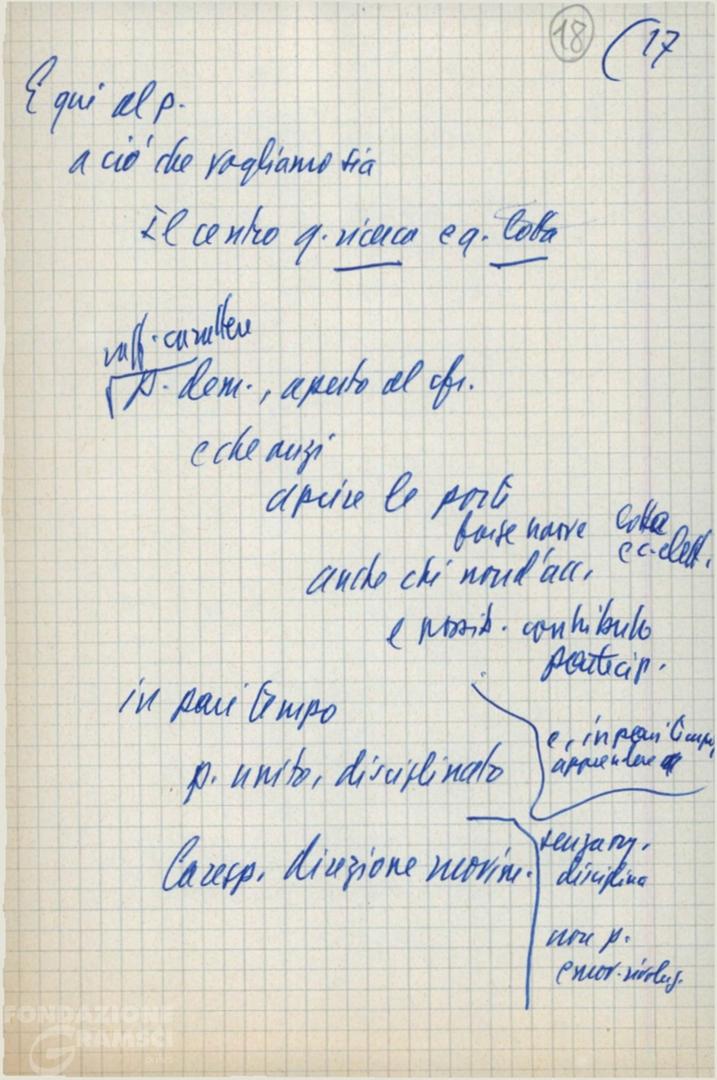 18 (17
E qui al p.
a ciò che vogliamo sia
Il centro q. ricerca e q. lotta
raff. carattere
p. dem., aperto al cfr.
e che anzi
aprire le porte
forse nuove lotta
e c. elett.
anche chi non d'acc.
e possib. contributo
particip.
in pari tempo
e, in pari tempo,
apprendere
p. unito, disciplinato
La resp. direzione movim.
senza org.
disciplina
non p.
e mov. rivoluz.
FONDAZIONE
GRAMSCI